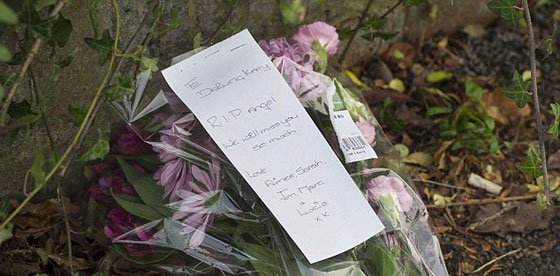 To
Darling Kerry
R.I.P Angel
We will miss you
so much
Love
Aimee, Sarah,
Jim, Marc
& Lucie
xx